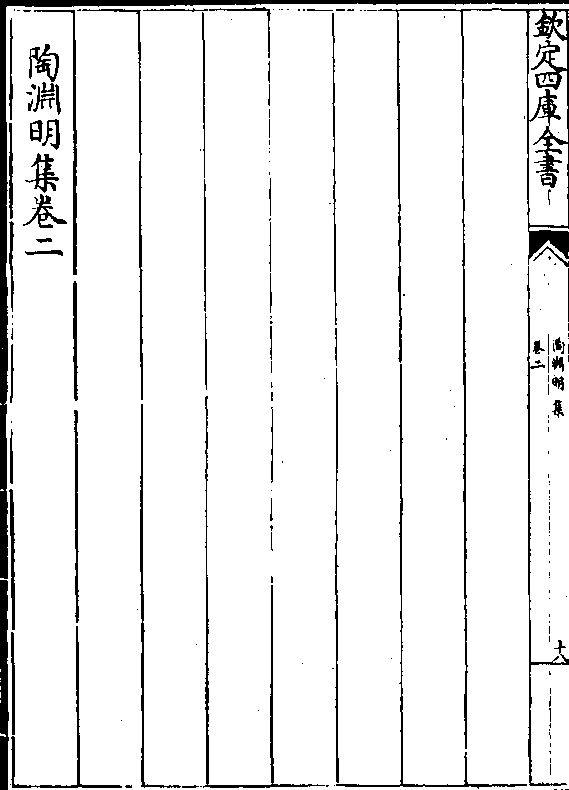 欽定四庫全書
陶淵明集
卷二
十八
陶淵明集卷二